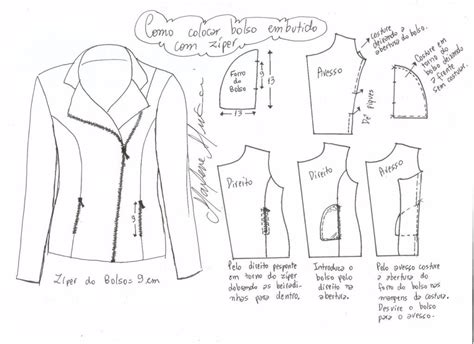 Como colocar bolso embutido
com zíper
Forro
do
Bolso
13
13
Avesso
costure
deixando a
abertura do bolso.
Costure em
torno do
bolso deixando
a frente
sem costurar.
Piques
Marlene Mukai
9
Zíper do Bolso = 9 cm
Direito
Direito
Avesso
Pelo direito pesponte
em torno do zíper
dobrando as beiradi-
nhas para dentro.
Introduza o
bolso pelo
direito na
abertura.
Pelo avesso costure
a abertura do
forro do bolso nas
margens da costura.
Desvire o bolso
para o avesso.